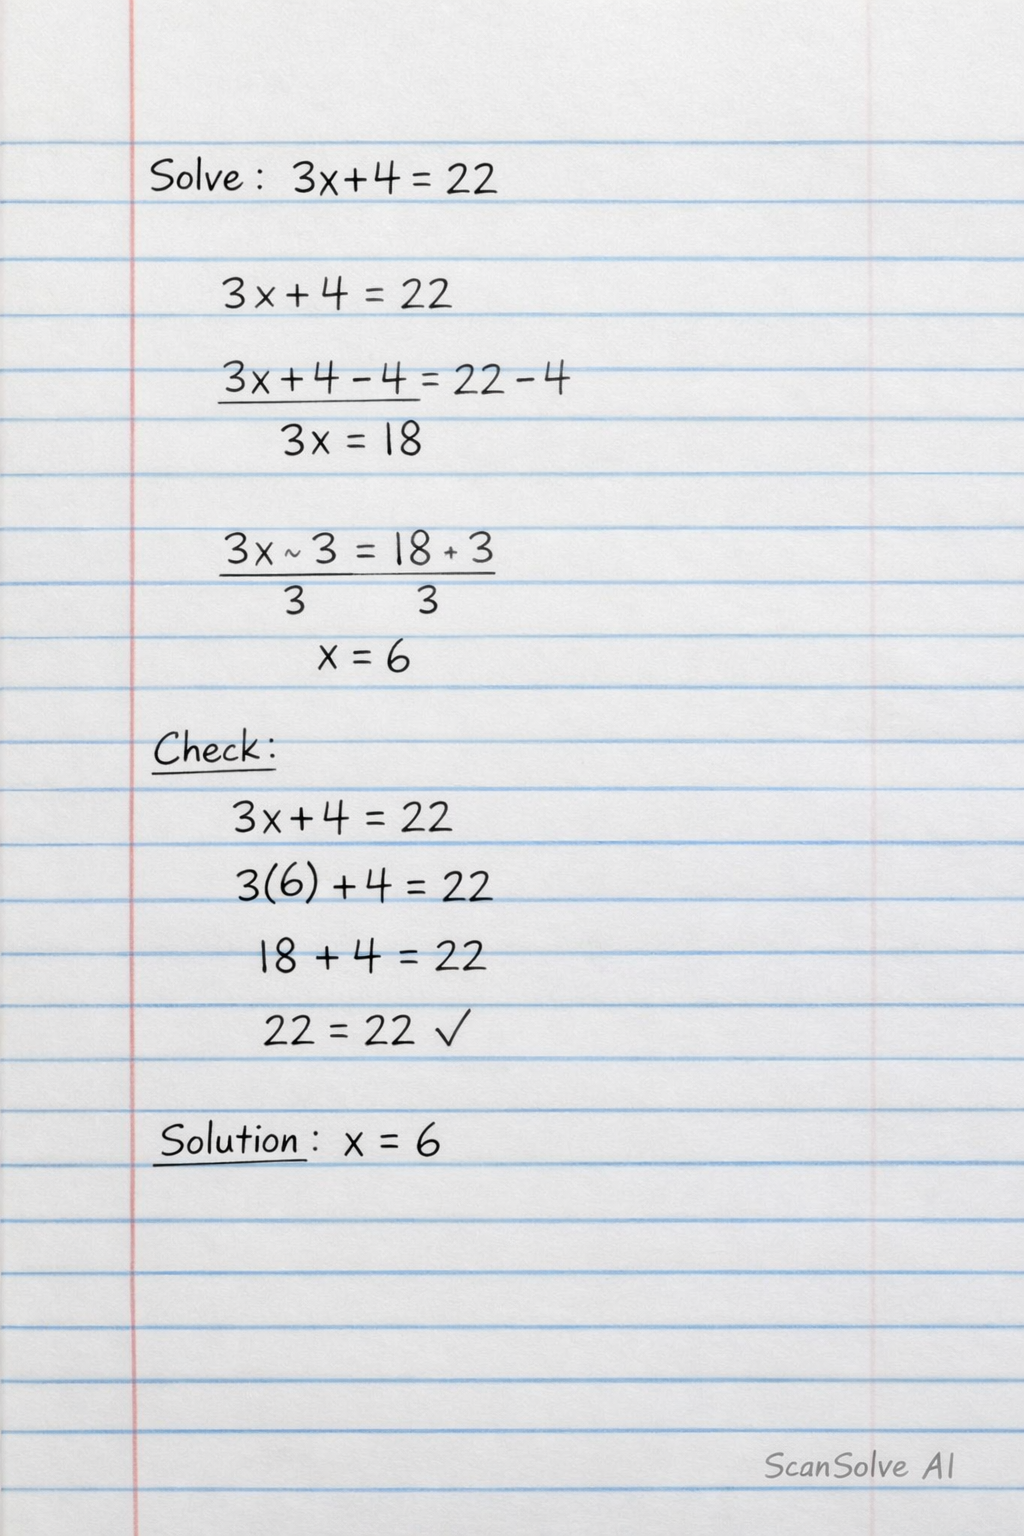 Solve: 3x+4 = 22
3x + 4 = 22
3x + 4 - 4 = 22 - 4
3x = 18
3x ~ 3 = 18 + 3
3 3
x = 6
Check:
3x + 4 = 22
3(6) + 4 = 22
18 + 4 = 22
22 = 22 ✓
Solution: x = 6
ScanSolve AI